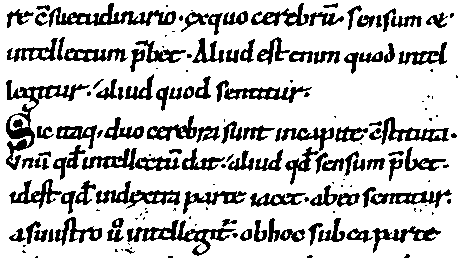 re c̄suetudinario · ex quo cerebrū · sensum &
intellectum p̄bet · Aliud est enim quod intel
legitur · aliud quod sentitur ·
Sic itaq· duo cerebra sunt in capite c̄stituta ·
unū qđ intellectū dat · aliud qđ sensum p̄bet ·
id est qđ in dextra parte iacet · ab eo sentitur ·
a sinistro ů intellegit̄ · ob hoc sub ea parte